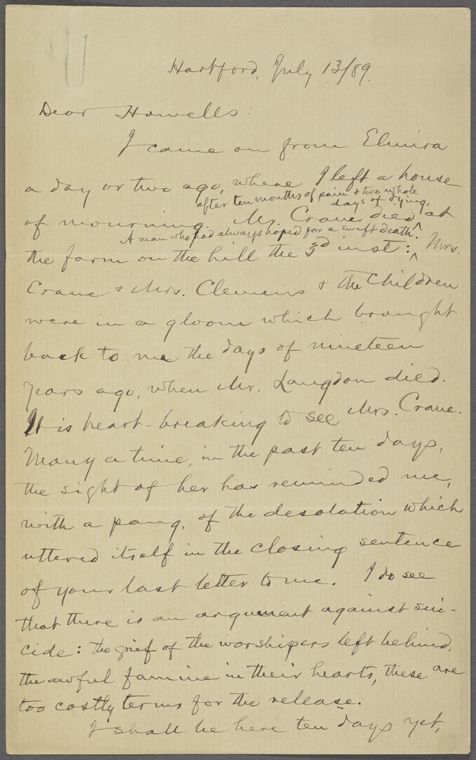 Hartford, July 13/89.
Dear Howells:
I came on from Elmira
a day or two ago, where I left a house
after ten months of pain & two whole
days of dying,
of mourning. Mr. Crane died ^ at
A man who had always hoped for a swift death.
the farm on the hill the 3d inst: ^ Mrs.
Crane & Mrs. Clemens & the children
were in a gloom which brought
back to me the days of nineteen
years ago, when Mr. Langdon died.
It is heart-breaking to see Mrs. Crane.
Many a time, in the past ten days,
the sight of her has reminded me,
with a pang, of the desolation which
uttered itself in the closing sentence
of your last letter to me. I do see
that there is an argument against sui-
cide: the grief of the worshipers left behind,
the awful famine in their hearts, these are
too costly terms for the release.
I shall be here ten days yet,